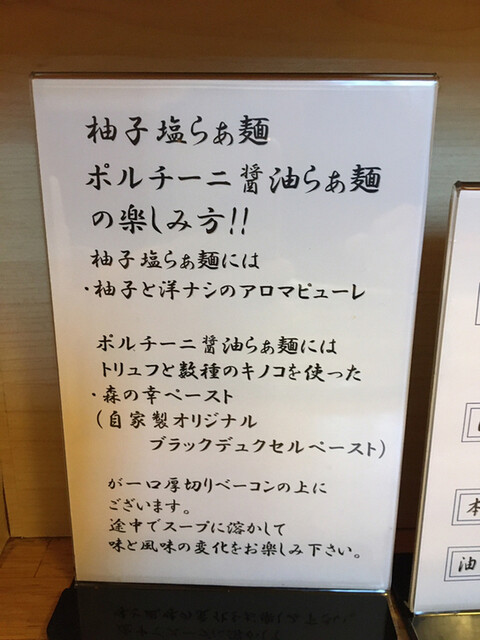 柚子塩らぁ麺
ポルチーニ醤油らぁ麺
の楽しみ方!!
柚子塩らぁ麺には
・柚子と洋ナシのアロマピューレ
ポルチーニ醤油らぁ麺には
トリュフと数種のキノコを使った
・森の幸ペースト
(自家製オリジナル
ブラックデュクセルペースト)
が一口厚切りベーコンの上に
ございます。
途中でスープに溶かして
味と風味の変化をお楽しみ下さい。
本
油